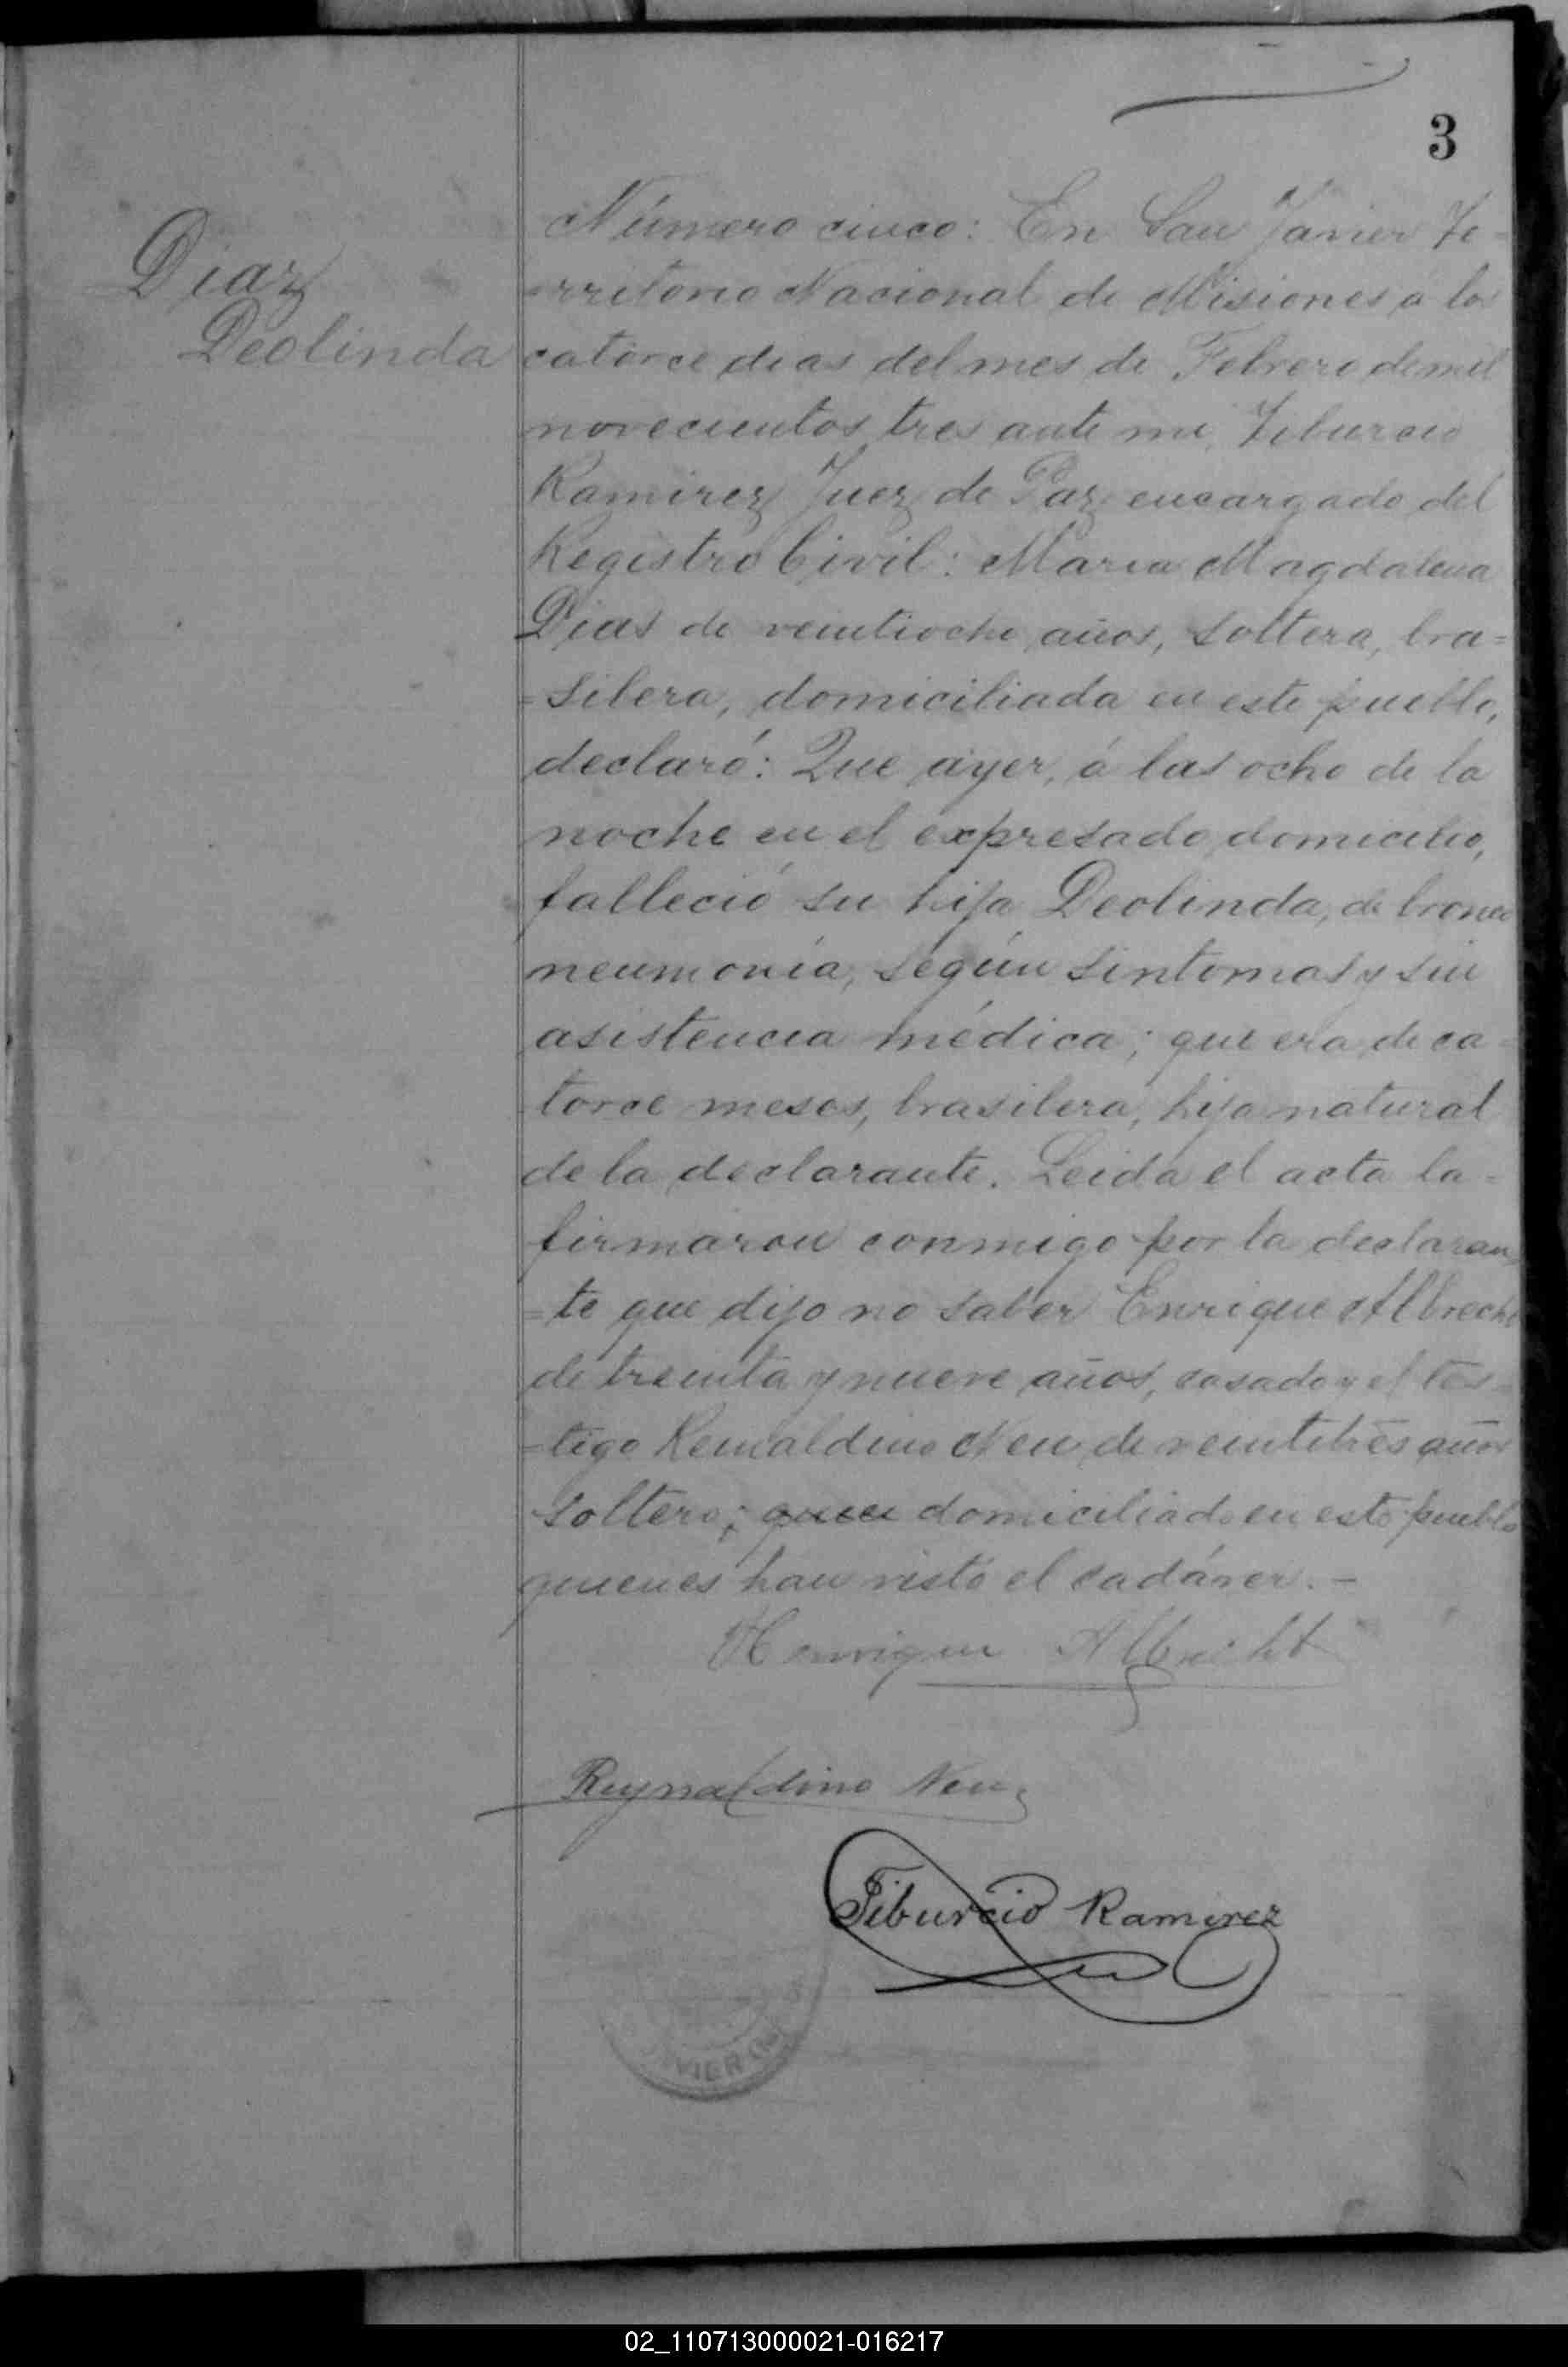 3
Diaz
Deolinda
Número cinco: En San Javier Te-
-rritorio Nacional de Misiones a los
catorce dias del mes de Febrero de mil
novecientos tres ante mi, Tiburcio
Ramirez Juez de Paz encargado del
Registro Civil: Maria Magdalena
Dias de veintiocho años, soltera, bra=
=silera, domiciliada en este pueblo,
declaró: Que ayer, á las ocho de la
noche en el expresado domicilio,
falleció su hija Deolinda, de bronco
neumonía, según sintomas y sin
asistencia médica; que era de ca=
torce meses, brasilera, hija natural
de la declarante. Leida el acta la=
firmaron conmigo por la declaran
=te que dijo no saber Enrique Albrecht
de treinta y nueve años, casado y el tes=
=tigo Reinaldino Neu, de veintitrés años
soltero; domiciliado en este pueblo
quienes han visto el cadáver.-
Henrique Albrecht
Reynaldino Neu
Tiburcio Ramirez
02_110713000021-016217